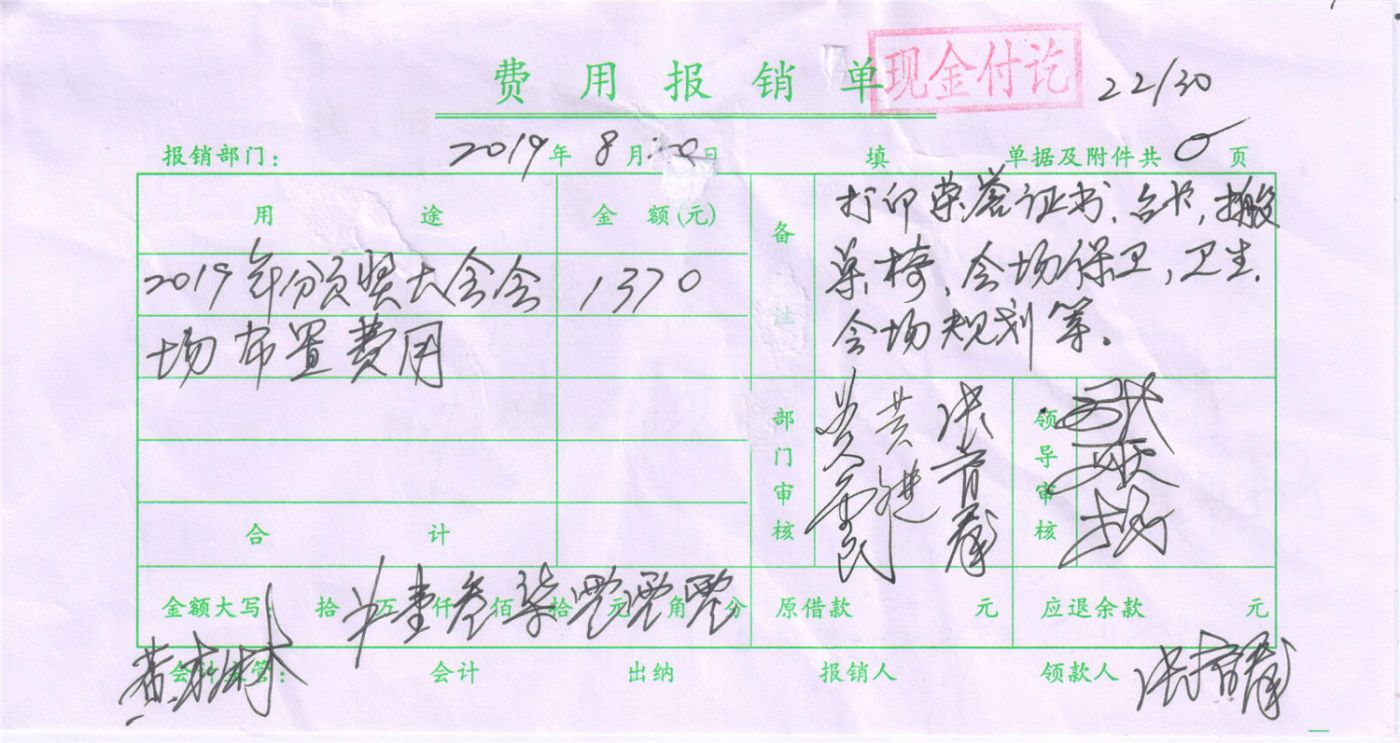 费用报销单
现金付讫
22/30
报销部门： 2019年8月20日 填 单据及附件共0页
用途 金额(元)
备注
打印荣誉证书、台卡，搬
桌椅，会场保卫，卫生，
会场规划等。
2019年份颁奖大会会 1370
场布置费用
部门审核
领导审核
合计
金额大写 拾万仟佰拾元角分
壹叁柒零零零
原借款 元
应退余款 元
会计主管： 会计 出纳 报销人 领款人